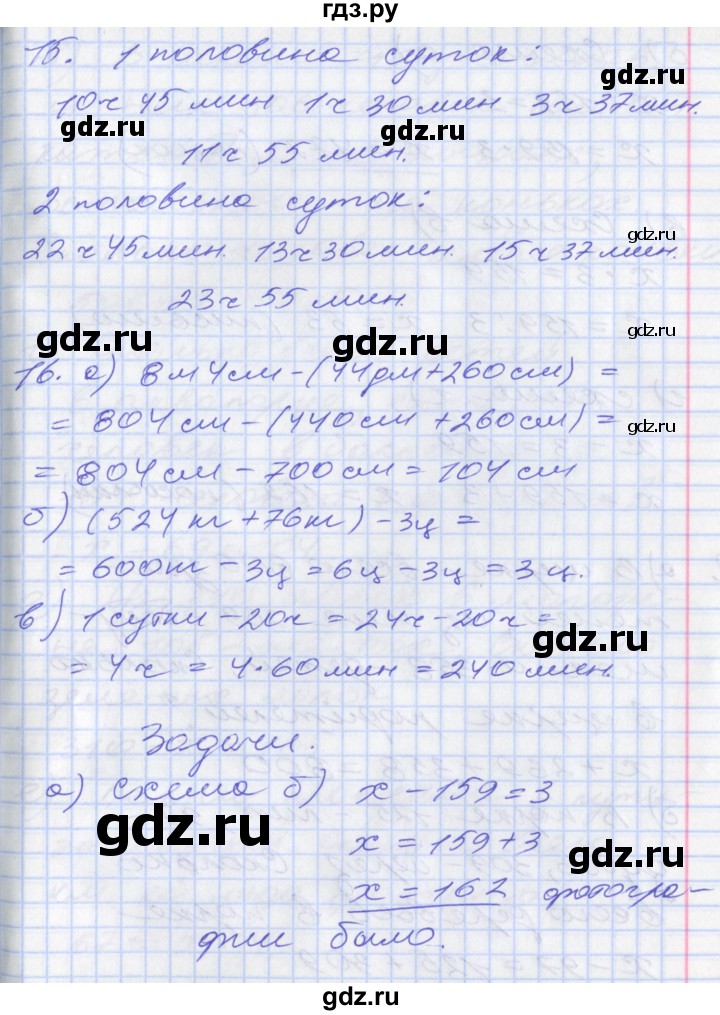 гдз.ру
15. 1 половина суток:
gdz.ru
10ч 45 мин 1ч 30 мин 3ч 37 мин.
gdz.ru gdz.ru
11ч 55 мин.
2 половина суток:
gdz.ru
22ч 45 мин. 13ч 30 мин. 15ч 37 мин.
23ч 55 мин.
gdz.ru gdz.ru gdz.ru
16. а) 8м 4см - (44дм + 260см) =
= 804см - (440см + 260см) =
gdz.ru
= 804см - 700см = 104 см
gdz.ru gdz.ru
б) (524кг + 76кг) - 3ц =
= 600кг - 3ц = 6ц - 3ц = 3ц.
в) 1 сутки - 20ч = 24ч - 20ч =
gdz.ru
= 4ч = 4·60 мин = 240 мин.
gdz.ru
Задачи.
а) схема б) x - 159 = 3
gdz.ru
x = 159 + 3
gdz.ru
x = 162 фотогра-
фии было.
gdz.ru gdz.ru
gdz.ru